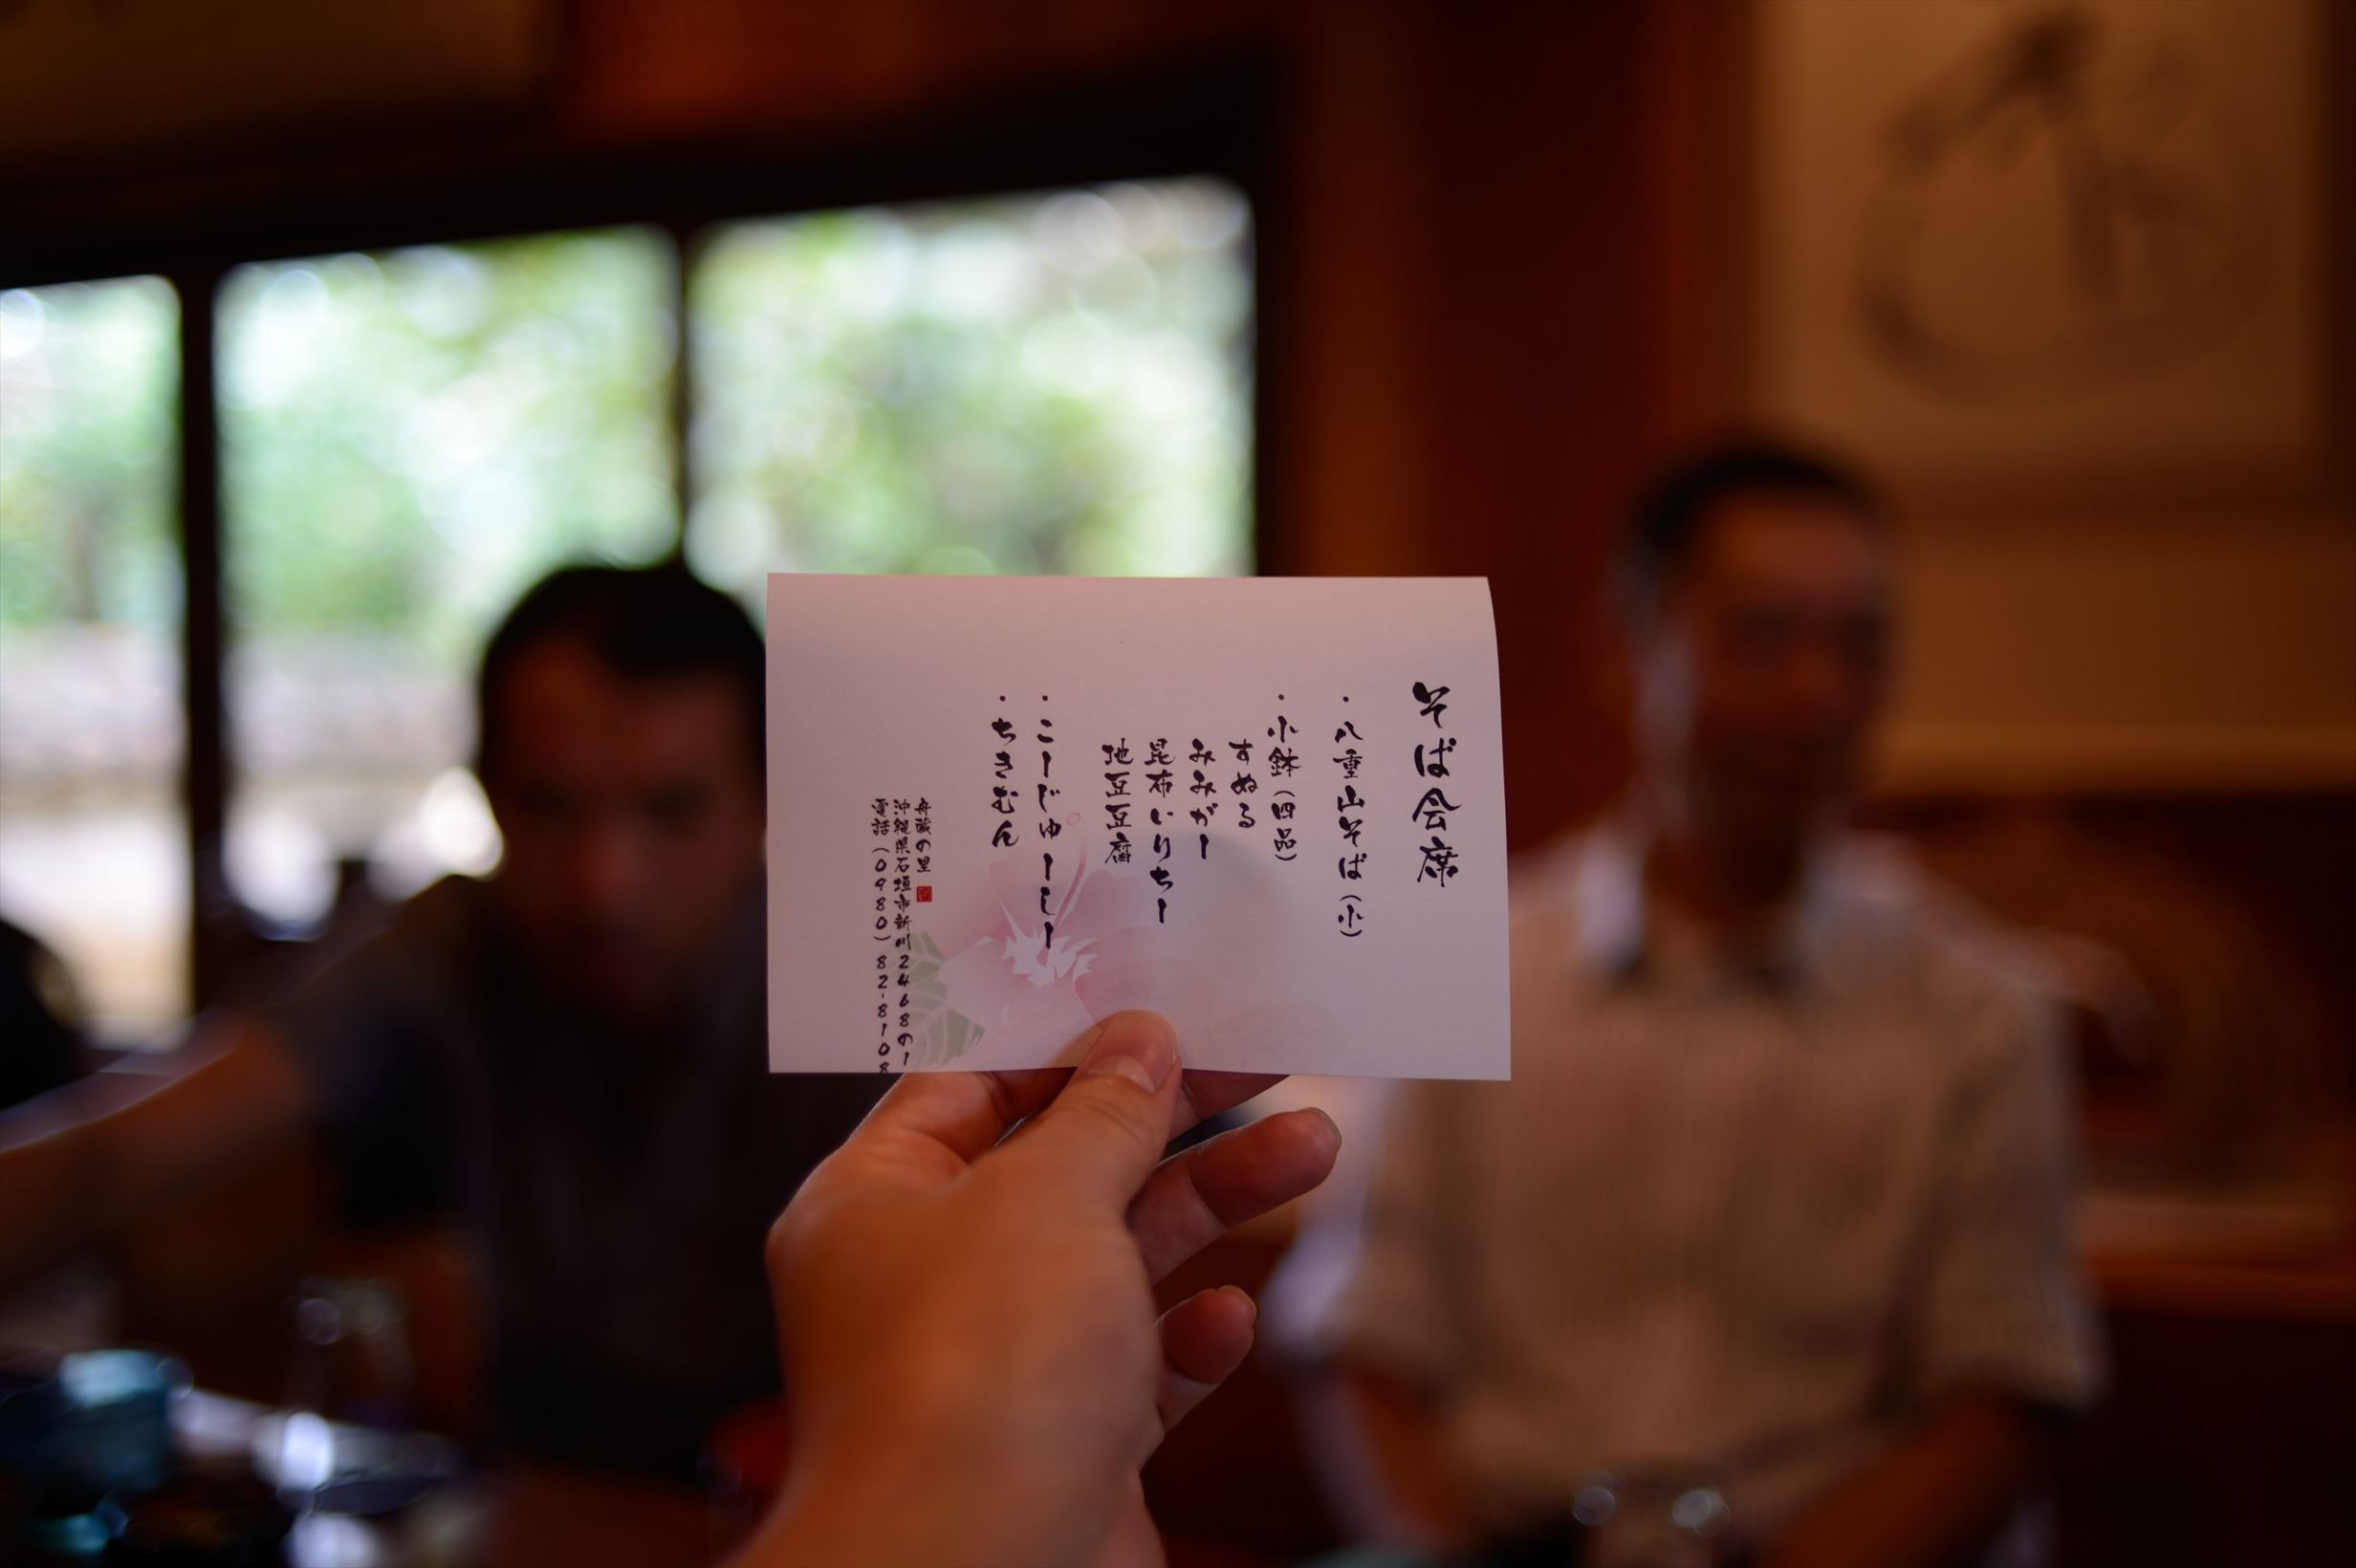 そば会席
・八重山そば(小)
・小鉢(四品)
すぬる
みみがー
昆布いりちー
地豆豆腐
・こーじゅーしー
・ちきむん
舟蔵の里
沖縄県石垣市新川2468の1
電話(0980)82-8108